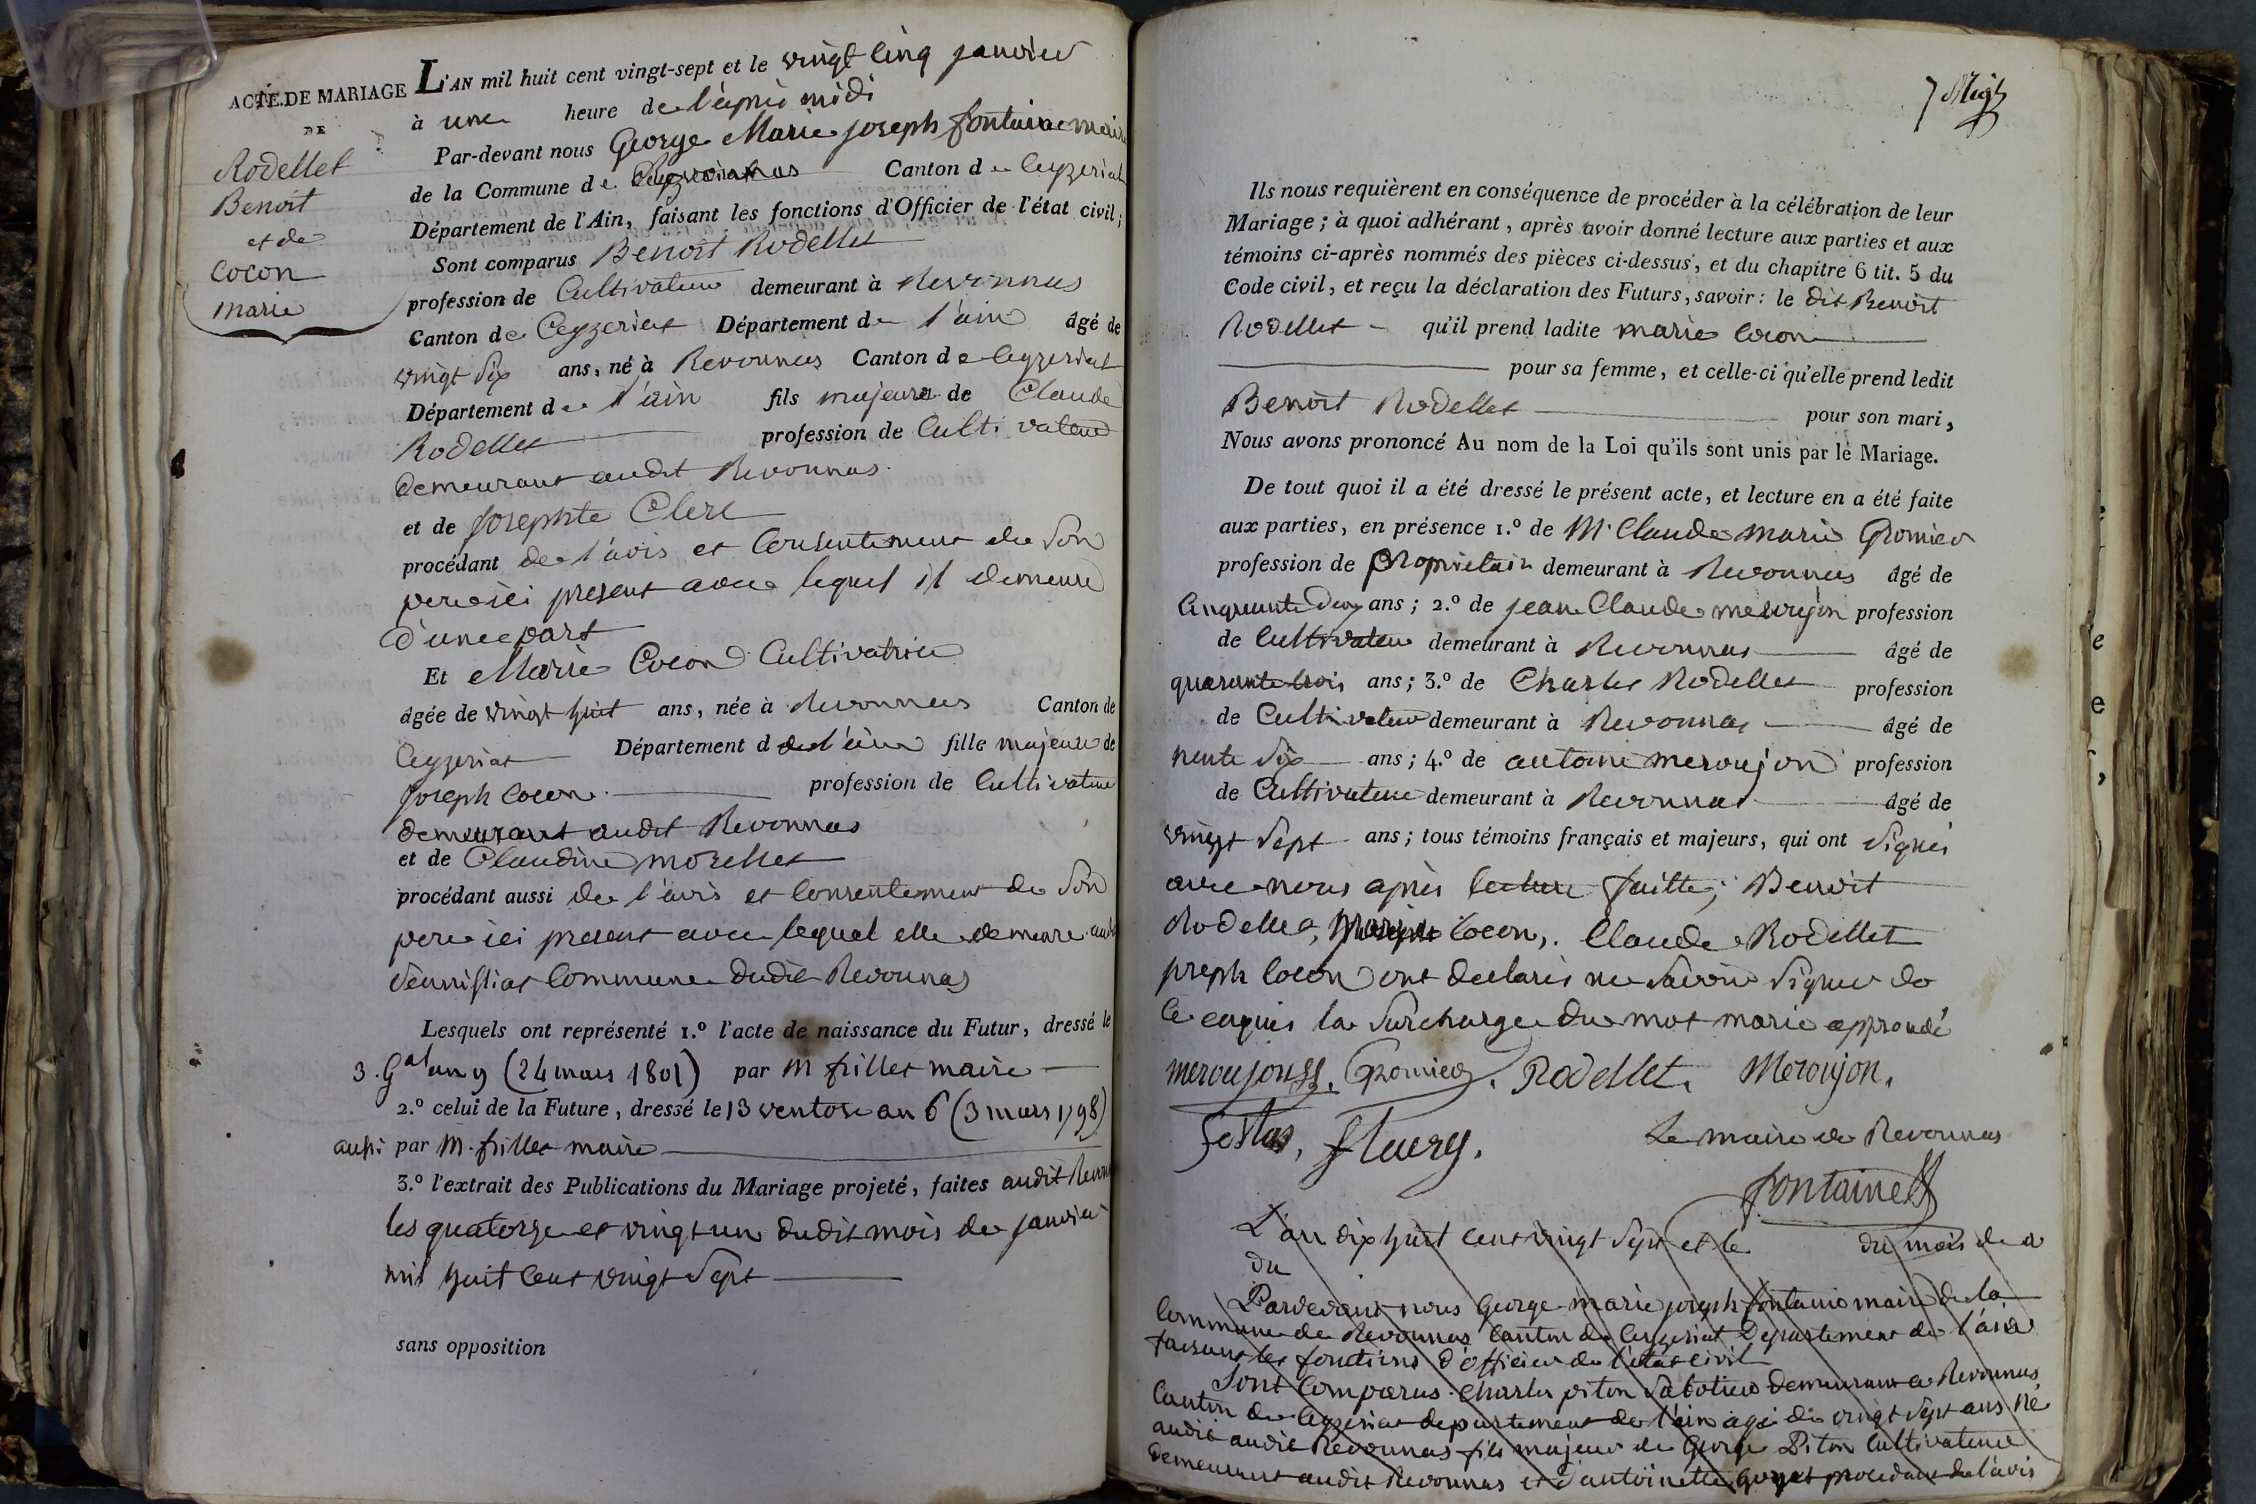 ACTE DE MARIAGE
DE
Rodellet
Benoit
et de
Cocon
Marie
L'AN mil huit cent vingt-sept et le vingt cinq janvier
à une heure de l'après midi
Par-devant nous George Marie joseph fontaine maire
de la Commune de Canton de Ceyzeriat
Département de l'Ain, faisant les fonctions d'Officier de l'état civil;
Sont comparus Benoit Rodellet
profession de Cultivateur demeurant à Revonnas
Canton de Ceyzeriat Département de l'ain âgé de
vingt six ans, né à Revonnas Canton de Ceyzeriat
Département de l'ain fils majeur de Claude
Rodellet profession de Cultivateur
demeurant audit Revonnas
et de Josephte Clerc
procédant de l'avis et Consentement de Son
pere ici present avec lequel il demeure
d'une part
Et Marie Cocon Cultivatrice
âgée de vingt huit ans, née à Revonnas Canton de
Ceyzeriat Département d de l'ain fille majeure de
Joseph Cocon profession de Cultivateur
demeurant audit Revonnas
et de Claudine morellet
procédant aussi de l'avis et Consentement de Son
pere ici present avec lequel elle demeure
Commune dudit Revonnas
Lesquels ont représenté 1.º l'acte de naissance du Futur, dressé le
3. Gal an 9 (24 mars 1801) par M frillet maire
2.º celui de la Future, dressé le 13 ventose an 6 (3 mars 1798)
aussi par M. frillet maire
3.º l'extrait des Publications du Mariage projeté, faites audit Revonnas
les quatorze et vingt un dudit mois de janvier
mil huit Cent vingt Sept
sans opposition
7
Ils nous requièrent en conséquence de procéder à la célébration de leur
Mariage; à quoi adhérant, après avoir donné lecture aux parties et aux
témoins ci-après nommés des pièces ci-dessus, et du chapitre 6 tit. 5 du
Code civil, et reçu la déclaration des Futurs, savoir: le dit Benoit
Rodellet qu'il prend ladite marie Cocon
pour sa femme, et celle-ci qu'elle prend ledit
Benoit Rodellet pour son mari,
Nous avons prononcé Au nom de la Loi qu'ils sont unis par le Mariage.
De tout quoi il a été dressé le présent acte, et lecture en a été faite
aux parties, en présence 1.º de Mr Claude marie Gromier
profession de Proprietaire demeurant à Revonnas âgé de
Cinquante deux ans; 2.º de jean Claude meroujon profession
de Cultivateur demeurant à Revonnas âgé de
quarante trois ans; 3.º de Charles Rodellet profession
de Cultivateur demeurant à Revonnas âgé de
trente Six ans; 4.º de antoine meroujon profession
de Cultivateur demeurant à Revonnas âgé de
vingt Sept ans; tous témoins français et majeurs, qui ont Signé
avec nous après lecture faitte; Benoit
Rodellet, Marie Cocon, Claude Rodellet
joseph Cocon ont declarés ne Savoir Signer de
Ce enquis la Surcharge du mot marie approuvé
meroujon. Gromier. Rodellet. Meroujon.
Fleury. Le maire de Revonnas
fontaine
L'an dix huit Cent vingt Sept et le du mois de
du
Pardevant nous George marie joseph fontaine maire de la
Commune de Revonnas Canton de Ceyzeriat Departement de l'ain
faisant les fonctions d'officier de l'état civil
Sont Comparus Charles piton Sabotier demeurant a Revonnas
Canton de Ceyzeriat departement de l'ain agé de vingt Sept ans né
audit audit Revonnas fils majeur de George Piton Cultivateur
demeurant audit Revonnas et d'antoinette Goyet procedant de l'avis